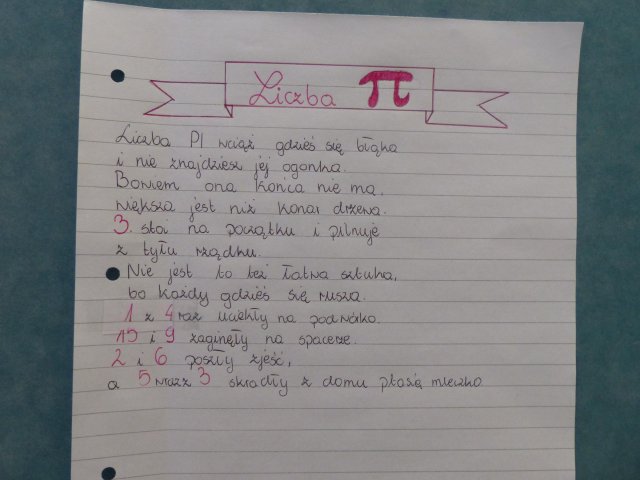 Liczba π
Liczba PI wciąż gdzieś się błąka
i nie znajdziesz jej ogonka.
Bowiem ona końca nie ma,
większa jest niż konar drzewa.
3 stoi na początku i pilnuje
z tyłu rządku.
Nie jest to też łatwa sztuka,
bo każdy gdzieś się rusza.
1 z 4 raz uciekły na podwórko.
15 i 9 zaginęły na spacerze.
2 i 6 poszły zjeść,
a 5 wraz z 3 skradły z domu ptasią mleczko